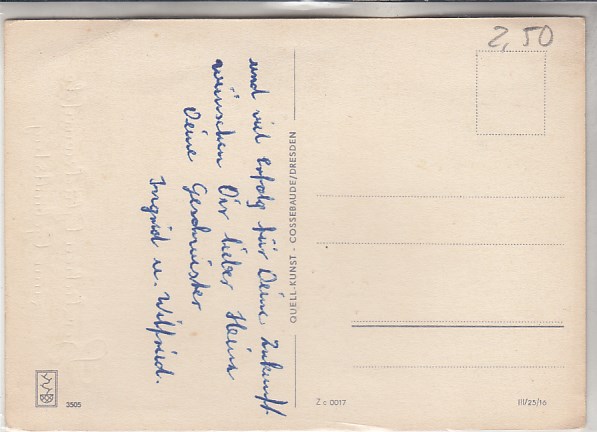 2,50
und viel Erfolg für Deine Zukunft.
wünschen Dir lieber Heinz
Deine Geschwister
Ingrid u. Wilfried.
QUELL-KUNST - COSSEBAUDE/DRESDEN
3505
Z c 0017
III/25/16